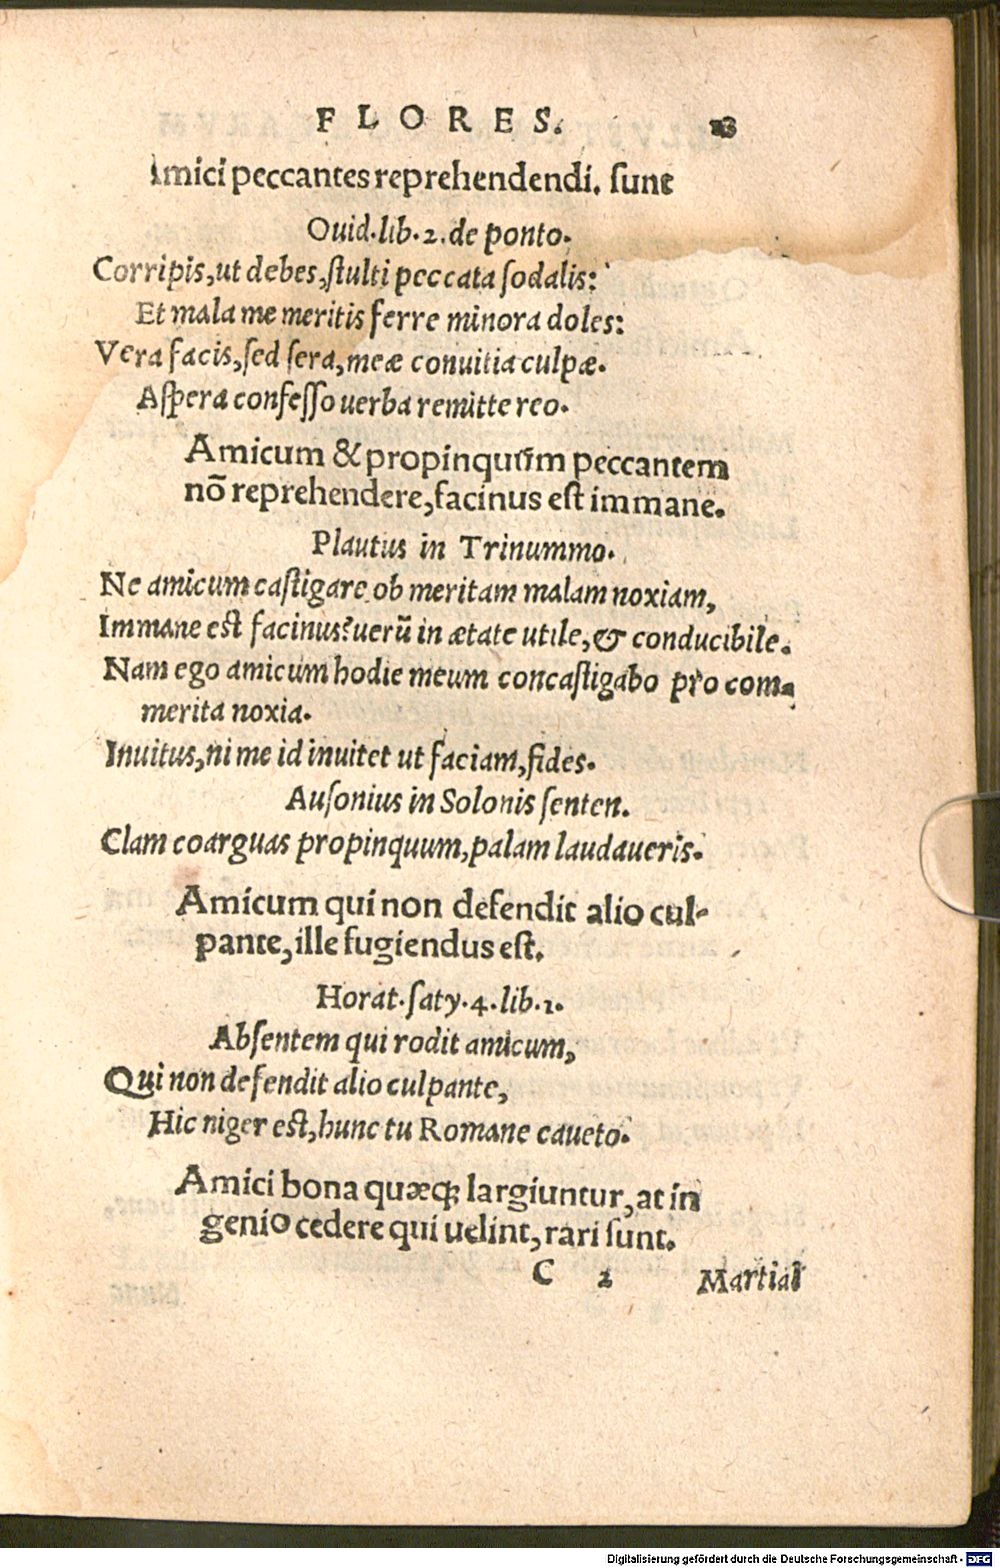 FLORES.
Amici peccantes reprehendendi. sunt
Ouid. lib. 2. de ponto.
Corripis, ut debes, stulti peccata sodalis:
Et mala me meritis ferre minora doles:
Vera facis, sed sera, meæ conuitia culpæ.
Aspera confesso uerba remitte reo.
Amicum & propinquum peccantem
nõ reprehendere, facinus est immane.
Plautus in Trinummo.
Ne amicum castigare ob meritam malam noxiam,
Immane est facinus? uerũ in ætate utile, & conducibile.
Nam ego amicum hodie meum concastigabo pro com-
merita noxia.
Inuitus, ni me id inuitet ut faciam, fides.
Ausonius in Solonis senten.
Clam coarguas propinquum, palam laudaueris.
Amicum qui non defendit alio cul-
pante, ille fugiendus est.
Horat. saty. 4. lib. 1.
Absentem qui rodit amicum,
Qui non defendit alio culpante,
Hic niger est, hunc tu Romane caueto.
Amici bona quæq; largiuntur, at in
genio cedere qui uelint, rari sunt.
C 2 Martial
Digitalisierung gefördert durch die Deutsche Forschungsgemeinschaft - DFG